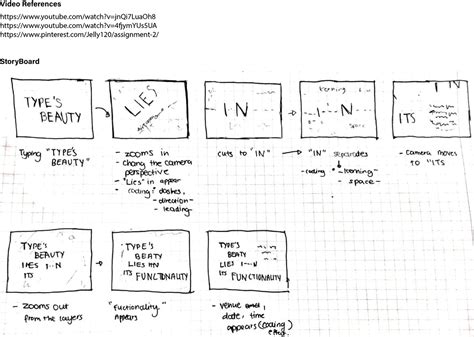 Video References
https://www.youtube.com/watch?v=jnQi7LuaOh8
https://www.youtube.com/watch?v=4fjymYUsSUA
https://www.pinterest.com/Jelly120/assignment-2/
StoryBoard
TYPE'S
BEAUTY
LIES
IN
kerning
I--N
ITS
Typing "TYPE'S
BEAUTY"
- zooms in
- Chang the camera
perspective
- "Lies" in appear
- coding: dashes,
- direction
- leading
cuts to "IN"
"IN" separates
- coding
- kerning
- space
- Camera moves
to "ITS
TYPE'S
BEAUTY
LIES I--N
ITS
TYPE'S
BEATY
LIES IN
ITS
FUNCTIONALITY
TYPE'S
BEATY
LIES IN
ITS
FUNCTIONALITY
- zooms out
from the layers
- "Fuctionality"
Appears
- venue
date, time
appears (coding